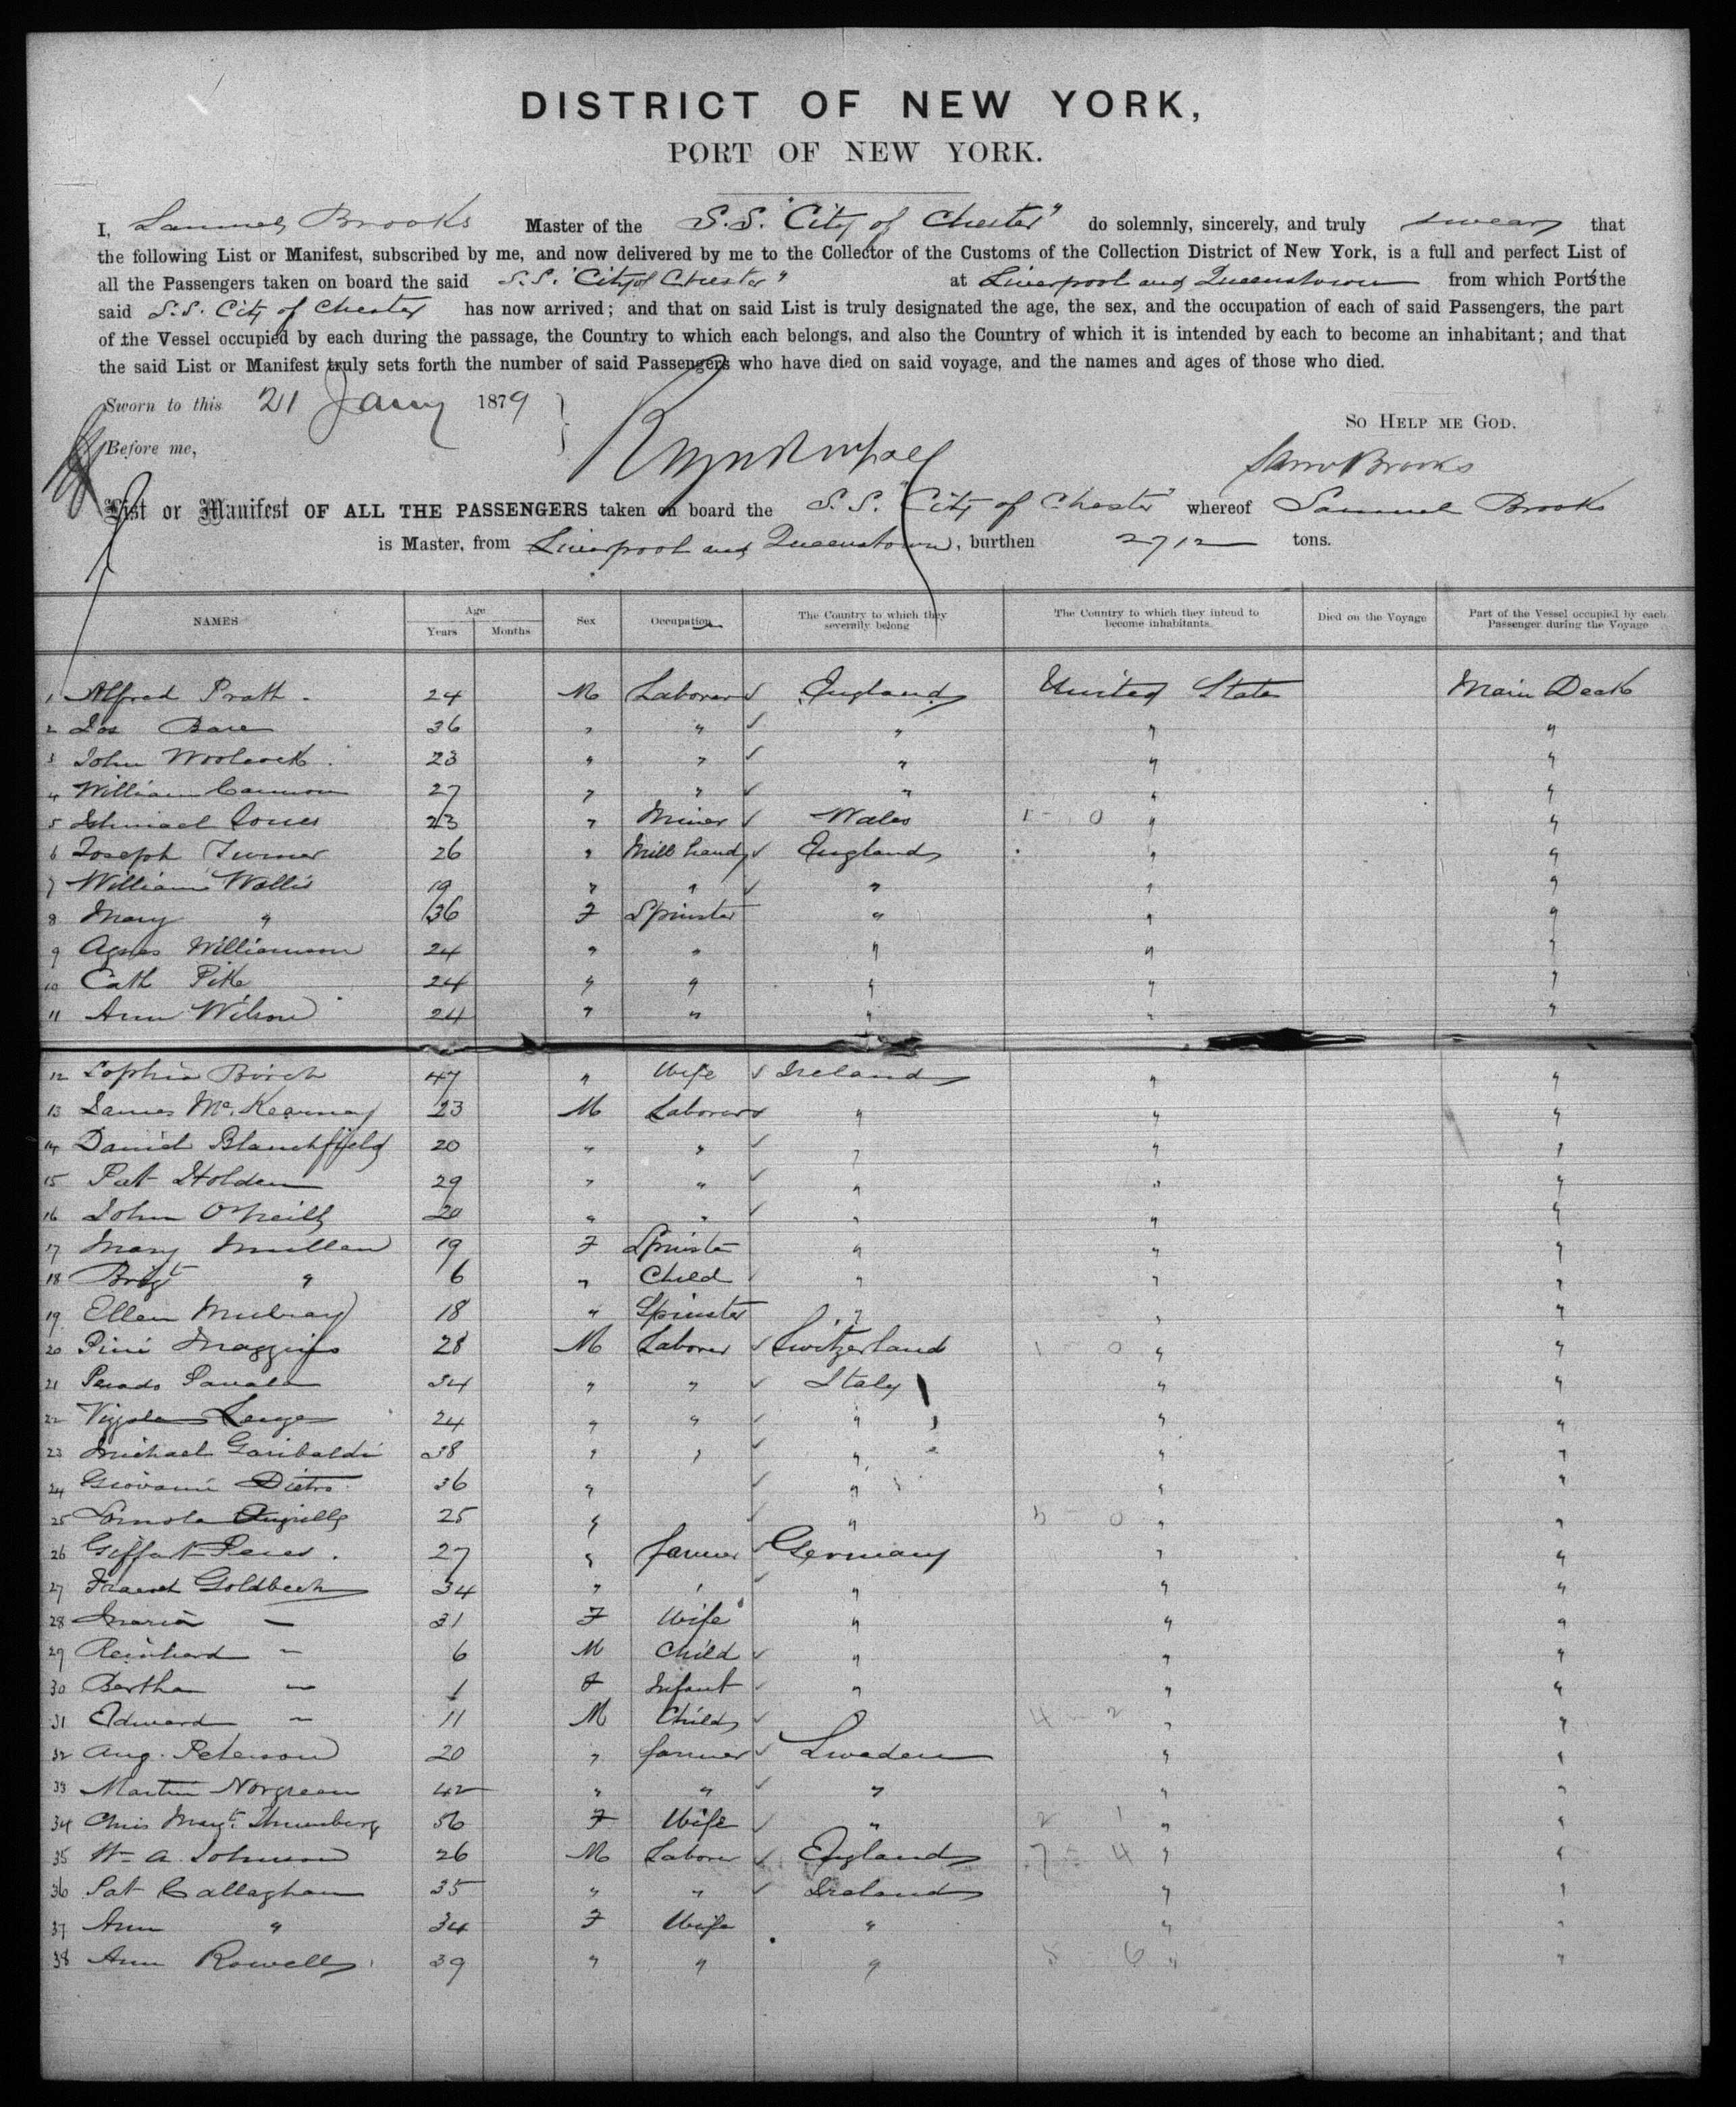 DISTRICT OF NEW YORK,
PORT OF NEW YORK.
I, Samuel Brooks Master of the S.S. "City of Chester" do solemnly, sincerely, and truly swear that
the following List or Manifest, subscribed by me, and now delivered by me to the Collector of the Customs of the Collection District of New York, is a full and perfect List of
all the Passengers taken on board the said S.S. "City of Chester" at Liverpool and Queenstown from which Port's the
said S.S. City of Chester has now arrived; and that on said List is truly designated the age, the sex, and the occupation of each of said Passengers, the part
of the Vessel occupied by each during the passage, the Country to which each belongs, and also the Country of which it is intended by each to become an inhabitant; and that
the said List or Manifest truly sets forth the number of said Passengers who have died on said voyage, and the names and ages of those who died.
Sworn to this 21 Jany 1879
So Help me God.
Before me,
Saml Brooks
List or Manifest OF ALL THE PASSENGERS taken on board the S.S. "City of Chester" whereof Samuel Brooks
is Master, from Liverpool and Queenstown, burthen 2712 tons.
NAMES Age Years Months Sex Occupation The Country to which they severally belong The Country to which they intend to become inhabitants. Died on the Voyage Part of the Vessel occupied by each Passenger during the Voyage
1 Alfred Pratt 24 M Laborer ✓ England United States Main Deck
2 Jos Bare 36 " " ✓ " " "
3 John Woolcock 23 " " ✓ " " "
4 William Cannon 27 " " ✓ " " "
5 Ishmael Jones 23 " Miner ✓ Wales 1 - 0 " "
6 Joseph Turner 26 " Mill hand ✓ England " "
7 William Wallis 19 " " ✓ " " "
8 Mary " 36 F Spinster " " "
9 Agnes Williamson 24 " " " " "
10 Cath Pike 24 " " " " "
11 Ann Wilson 24 " " " " "
12 Sophia Birch 47 " Wife ✓ Ireland " "
13 James McKearney 23 M Laborer ✓ " " "
14 Daniel Blanchfield 20 " " ✓ " " "
15 Pat Holden 29 " " ✓ " " "
16 John O'Neill 20 " " ✓ " " "
17 Mary Mullen 19 F Spinster " " "
18 Brigt " 6 " Child " " "
19 Ellen Mulvay 18 " Spinster " " "
20 Pini Maggini 28 M Laborer ✓ Switzerland 1 - 0 " "
21 34 " " ✓ Italy " "
22 24 " " ✓ " " "
23 Michael Garibaldi 38 " " ✓ " " "
24 Giovanni Pietro 36 " ✓ " " "
25 25 " ✓ " 5 - 0 " "
26 27 " farmer ✓ Germany " "
27 Goldbeck 34 " " ✓ " " "
28 Maria — 31 F Wife " " "
29 Reinhard — 6 M Child ✓ " " "
30 Bertha — 1 F Infant ✓ " " "
31 Edward — 11 M Child ✓ 4 - 2 " "
32 Aug. Peterson 20 " farmer ✓ Sweden " "
33 Martin Norgreen 42 " " ✓ " " "
34 Chris Margt. Thunberg 56 F Wife ✓ " 2 1 " "
35 Wm A. Johnson 26 M Laborer ✓ England 7 - 4 " "
36 Pat Callaghan 35 " " ✓ Ireland " "
37 Ann " 34 F Wife " " "
38 Ann Rowell 39 " " " 5 6 " "